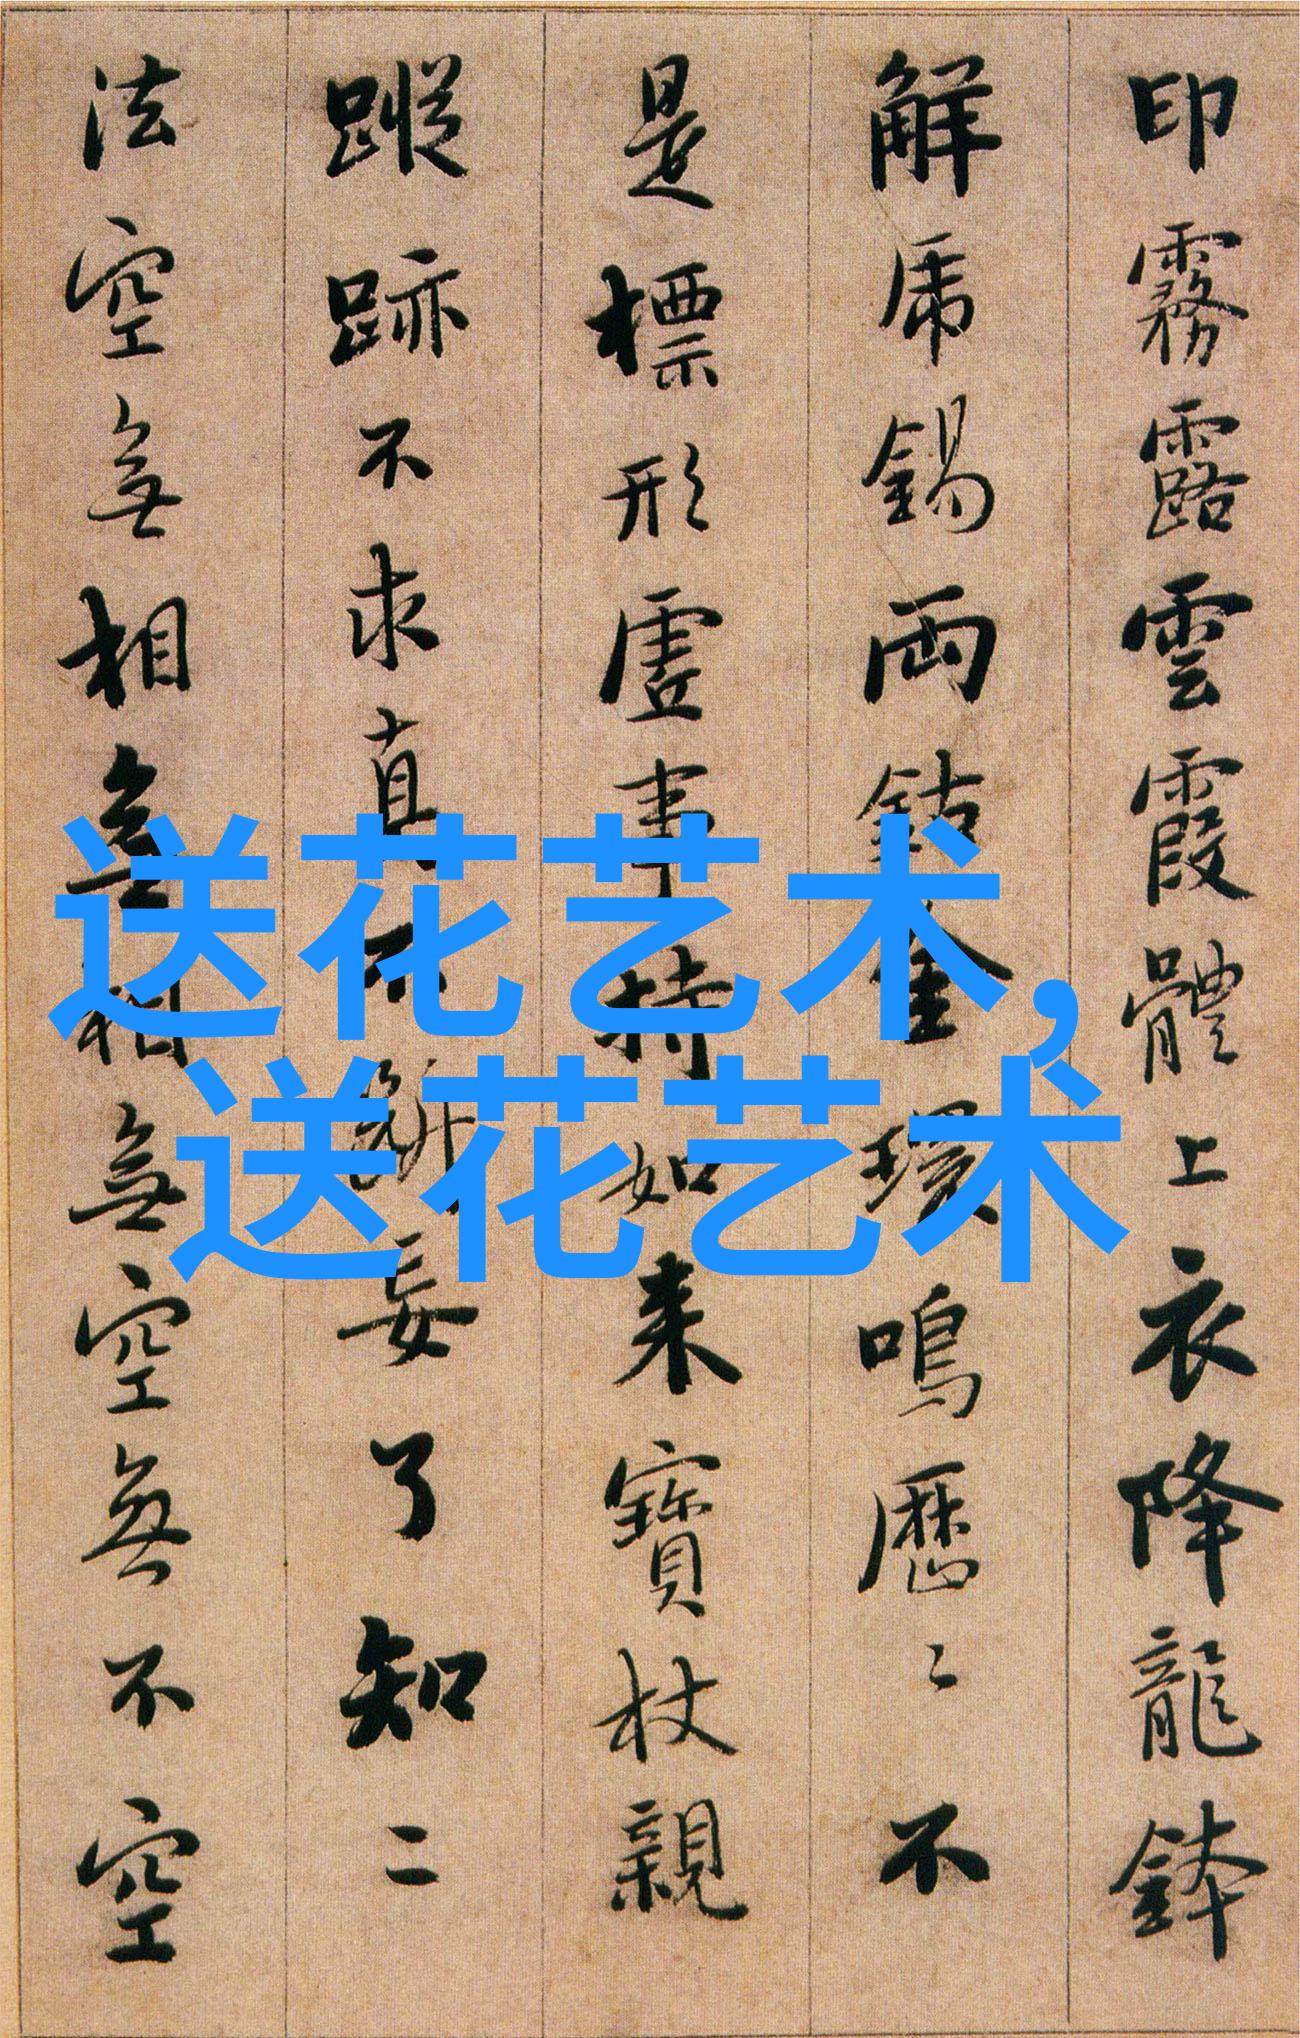 印霧露雲霞體上衣降龍鉢
解虎錫兩鈷金環鳴歷〻不
是標形虛事持如来寶杖親
蹤跡不求真不斷妄了知二
法空無相無相無空無不空
送花艺术,
送花艺术